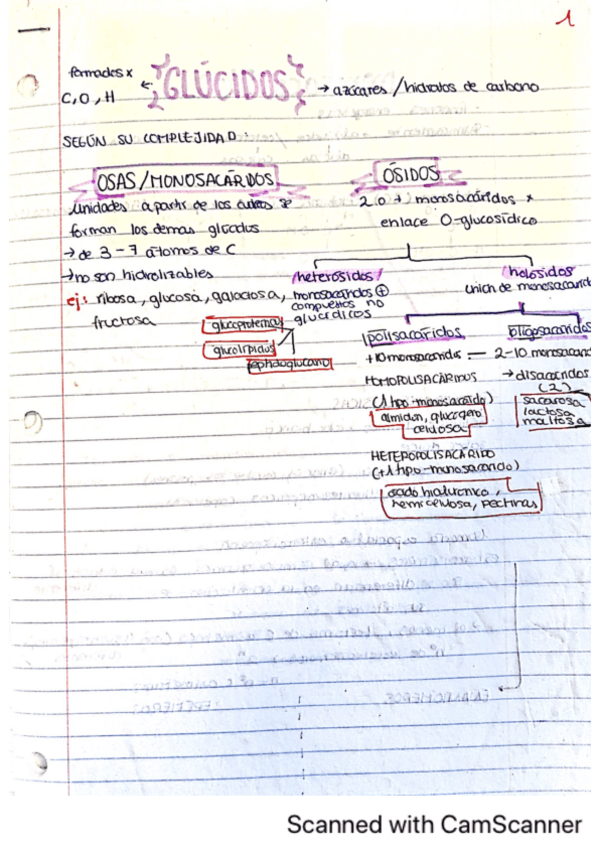 1
formados x
C, O, H
GLÚCIDOS
→ azúcares / hidratos de carbono
SEGÚN SU COMPLEJIDAD:
OSAS/MONOSACÁRIDOS
unidades a partir de las cuales se
forman los demas glúcidos
→ de 3 - 7 átomos de C
→ no son hidrolizables
ej: ribosa, glucosa, galactosa,
fructosa
ÓSIDOS
2 o + monosacáridos x
enlace O-glucosídico
/heterósidos/
monosacáridos (+)
compuestos no
glucídicos
glucoproteinas
glucolípidos
peptidoglucano
/holósidos
unión de monosacarid
polisacáridos
+10 monosacaridos
HOMOPOLISACÁRIDOS
(1 tipo monosacárido)
almidon, glucogeno
celulosa
HETEROPOLISACÁRIDO
(+1 tipo-monosacarido)
ácido hialuronico,
hemicelulosa, pectinas
oligosacaridos
2-10 monosacari
→ disacaridos
(2)
sacarosa
lactosa
maltosa
Scanned with CamScanner